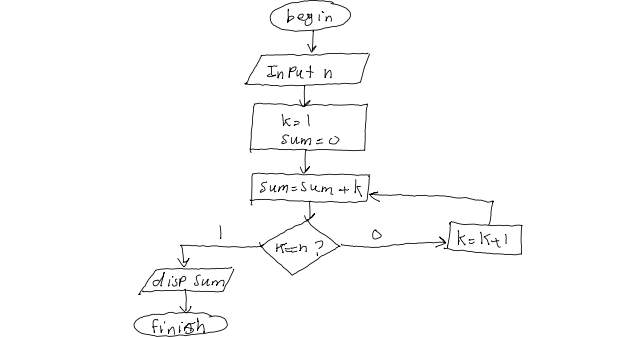 begin
Input n
k=1
sum=0
sum=sum+k
k==n?
1
0
k=k+1
disp sum
finish